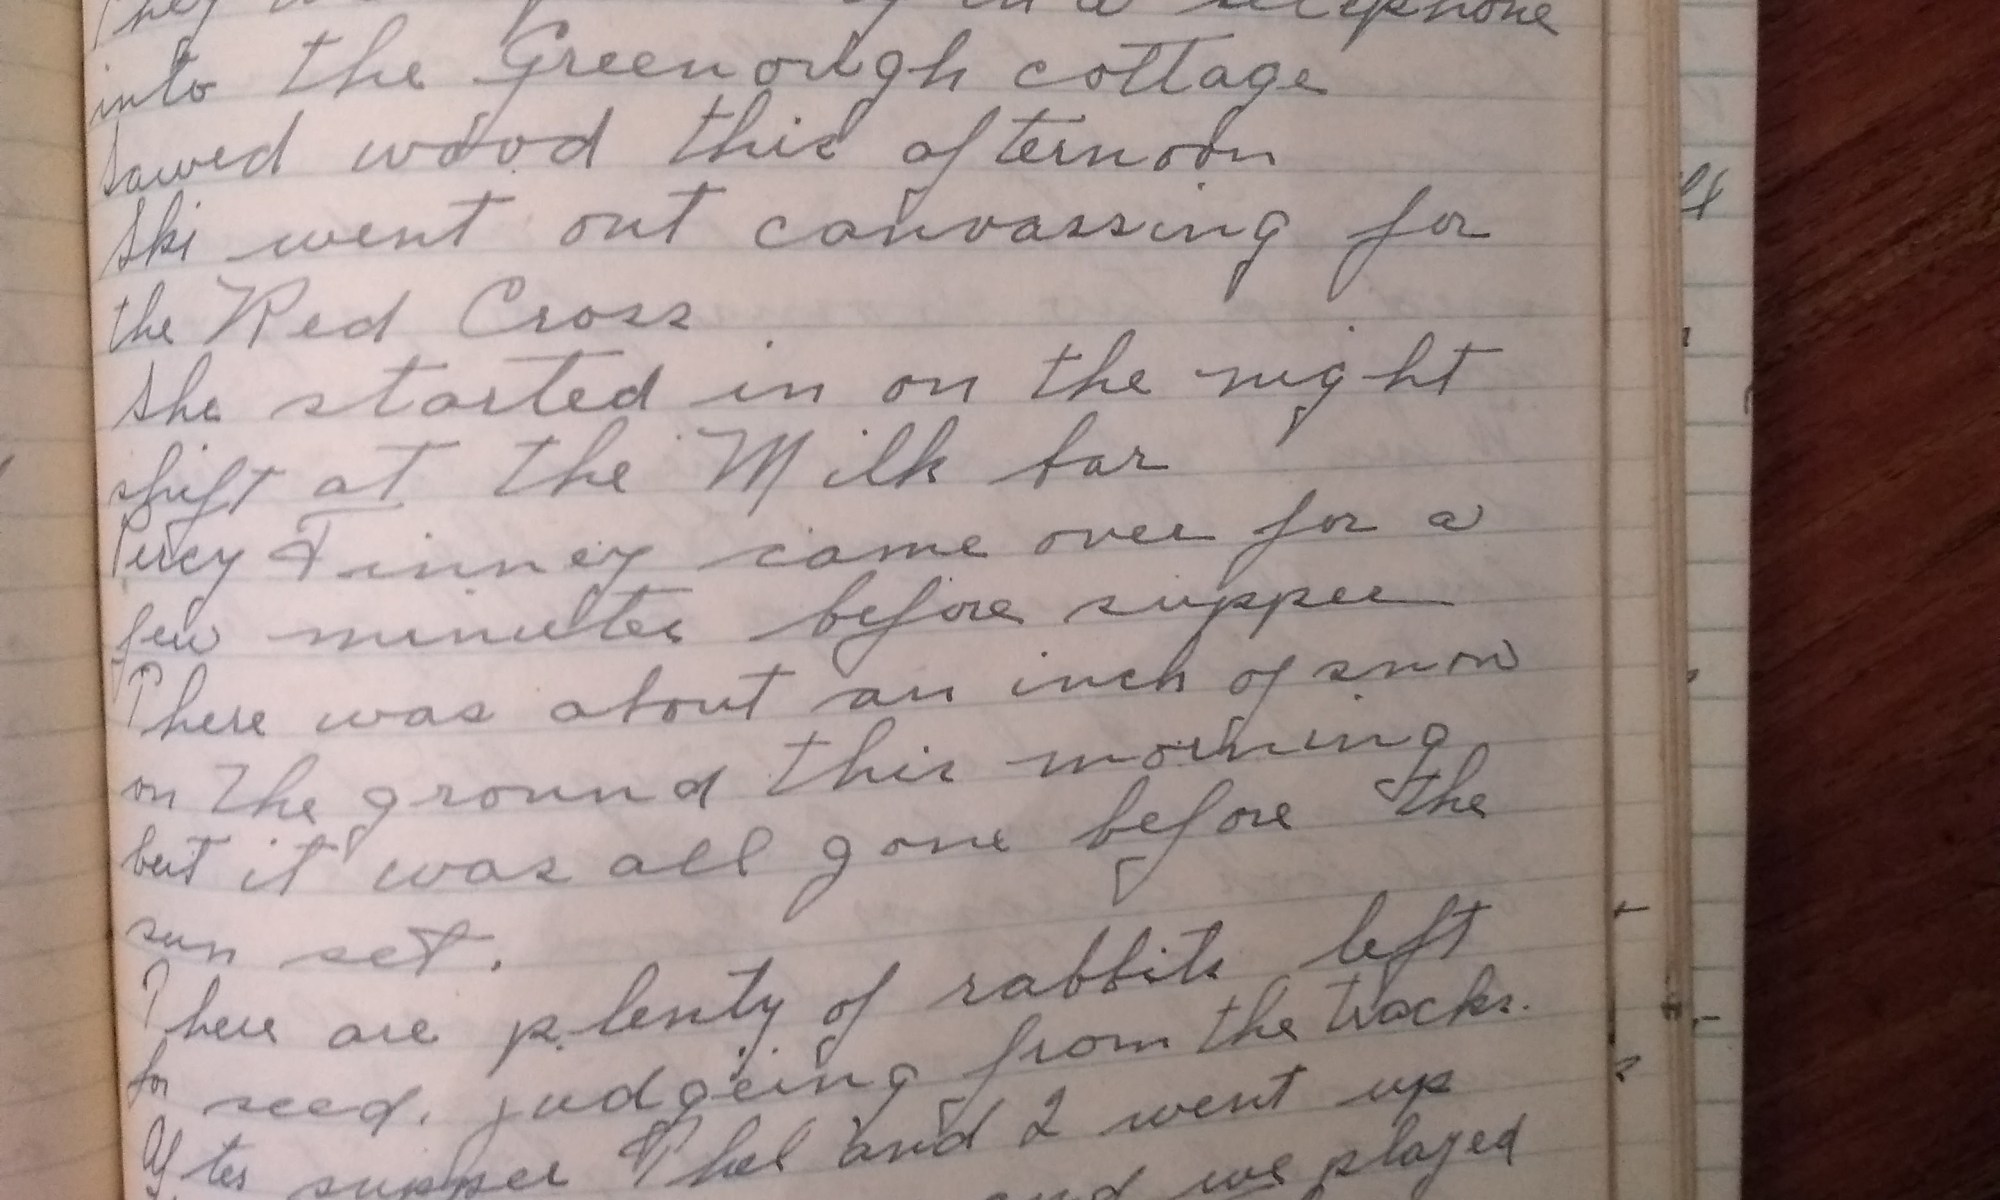 They in a telephone
into the Greenough cottage
Sawed wood this afternoon
Ski went out canvassing for
the Red Cross
She started in on the night
shift at the Milk bar
Percy Finney came over for a
few minutes before supper
There was about an inch of snow
on the ground this morning
but it was all gone before the
sun set.
There are plenty of rabbits left
for seed. judgeing from the tracks.
After supper Phel and I went up
and we played